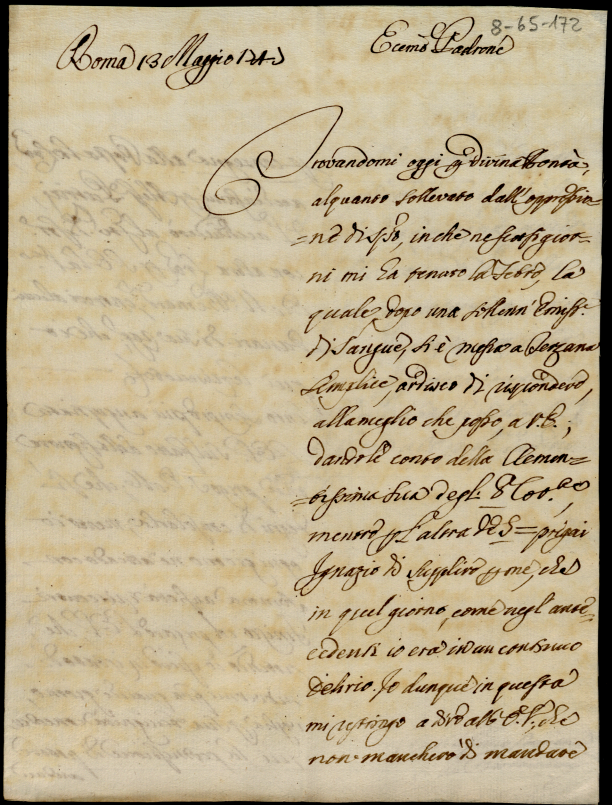 8-65-172
Roma 13 Maggio
Ecemo Padrone
Trovandomi oggi p divina Bontà,
alquanto sollevato dall' oppressio=
=ne di spto, in che ne scorsi gior=
ni mi ha tenuto la Febre, la
quale, dopo una sollenn' Emiss.
di Sangue, si è messa a Terzana
semplice, ardisco di rispondere,
alla meglio che posso, a V.E.,
dandole conto della Clemen=
=tissima sua degl' 8 Cor.te,
mentre p l'altra de 5= pregai
Ignazio di supplire p me, che
in quel giorno, come negl' ante=
cedenti io era in un continuo
delirio. Io dunque in questa
mi ristringo a dire all' E.V., che
non mancherò di mandare